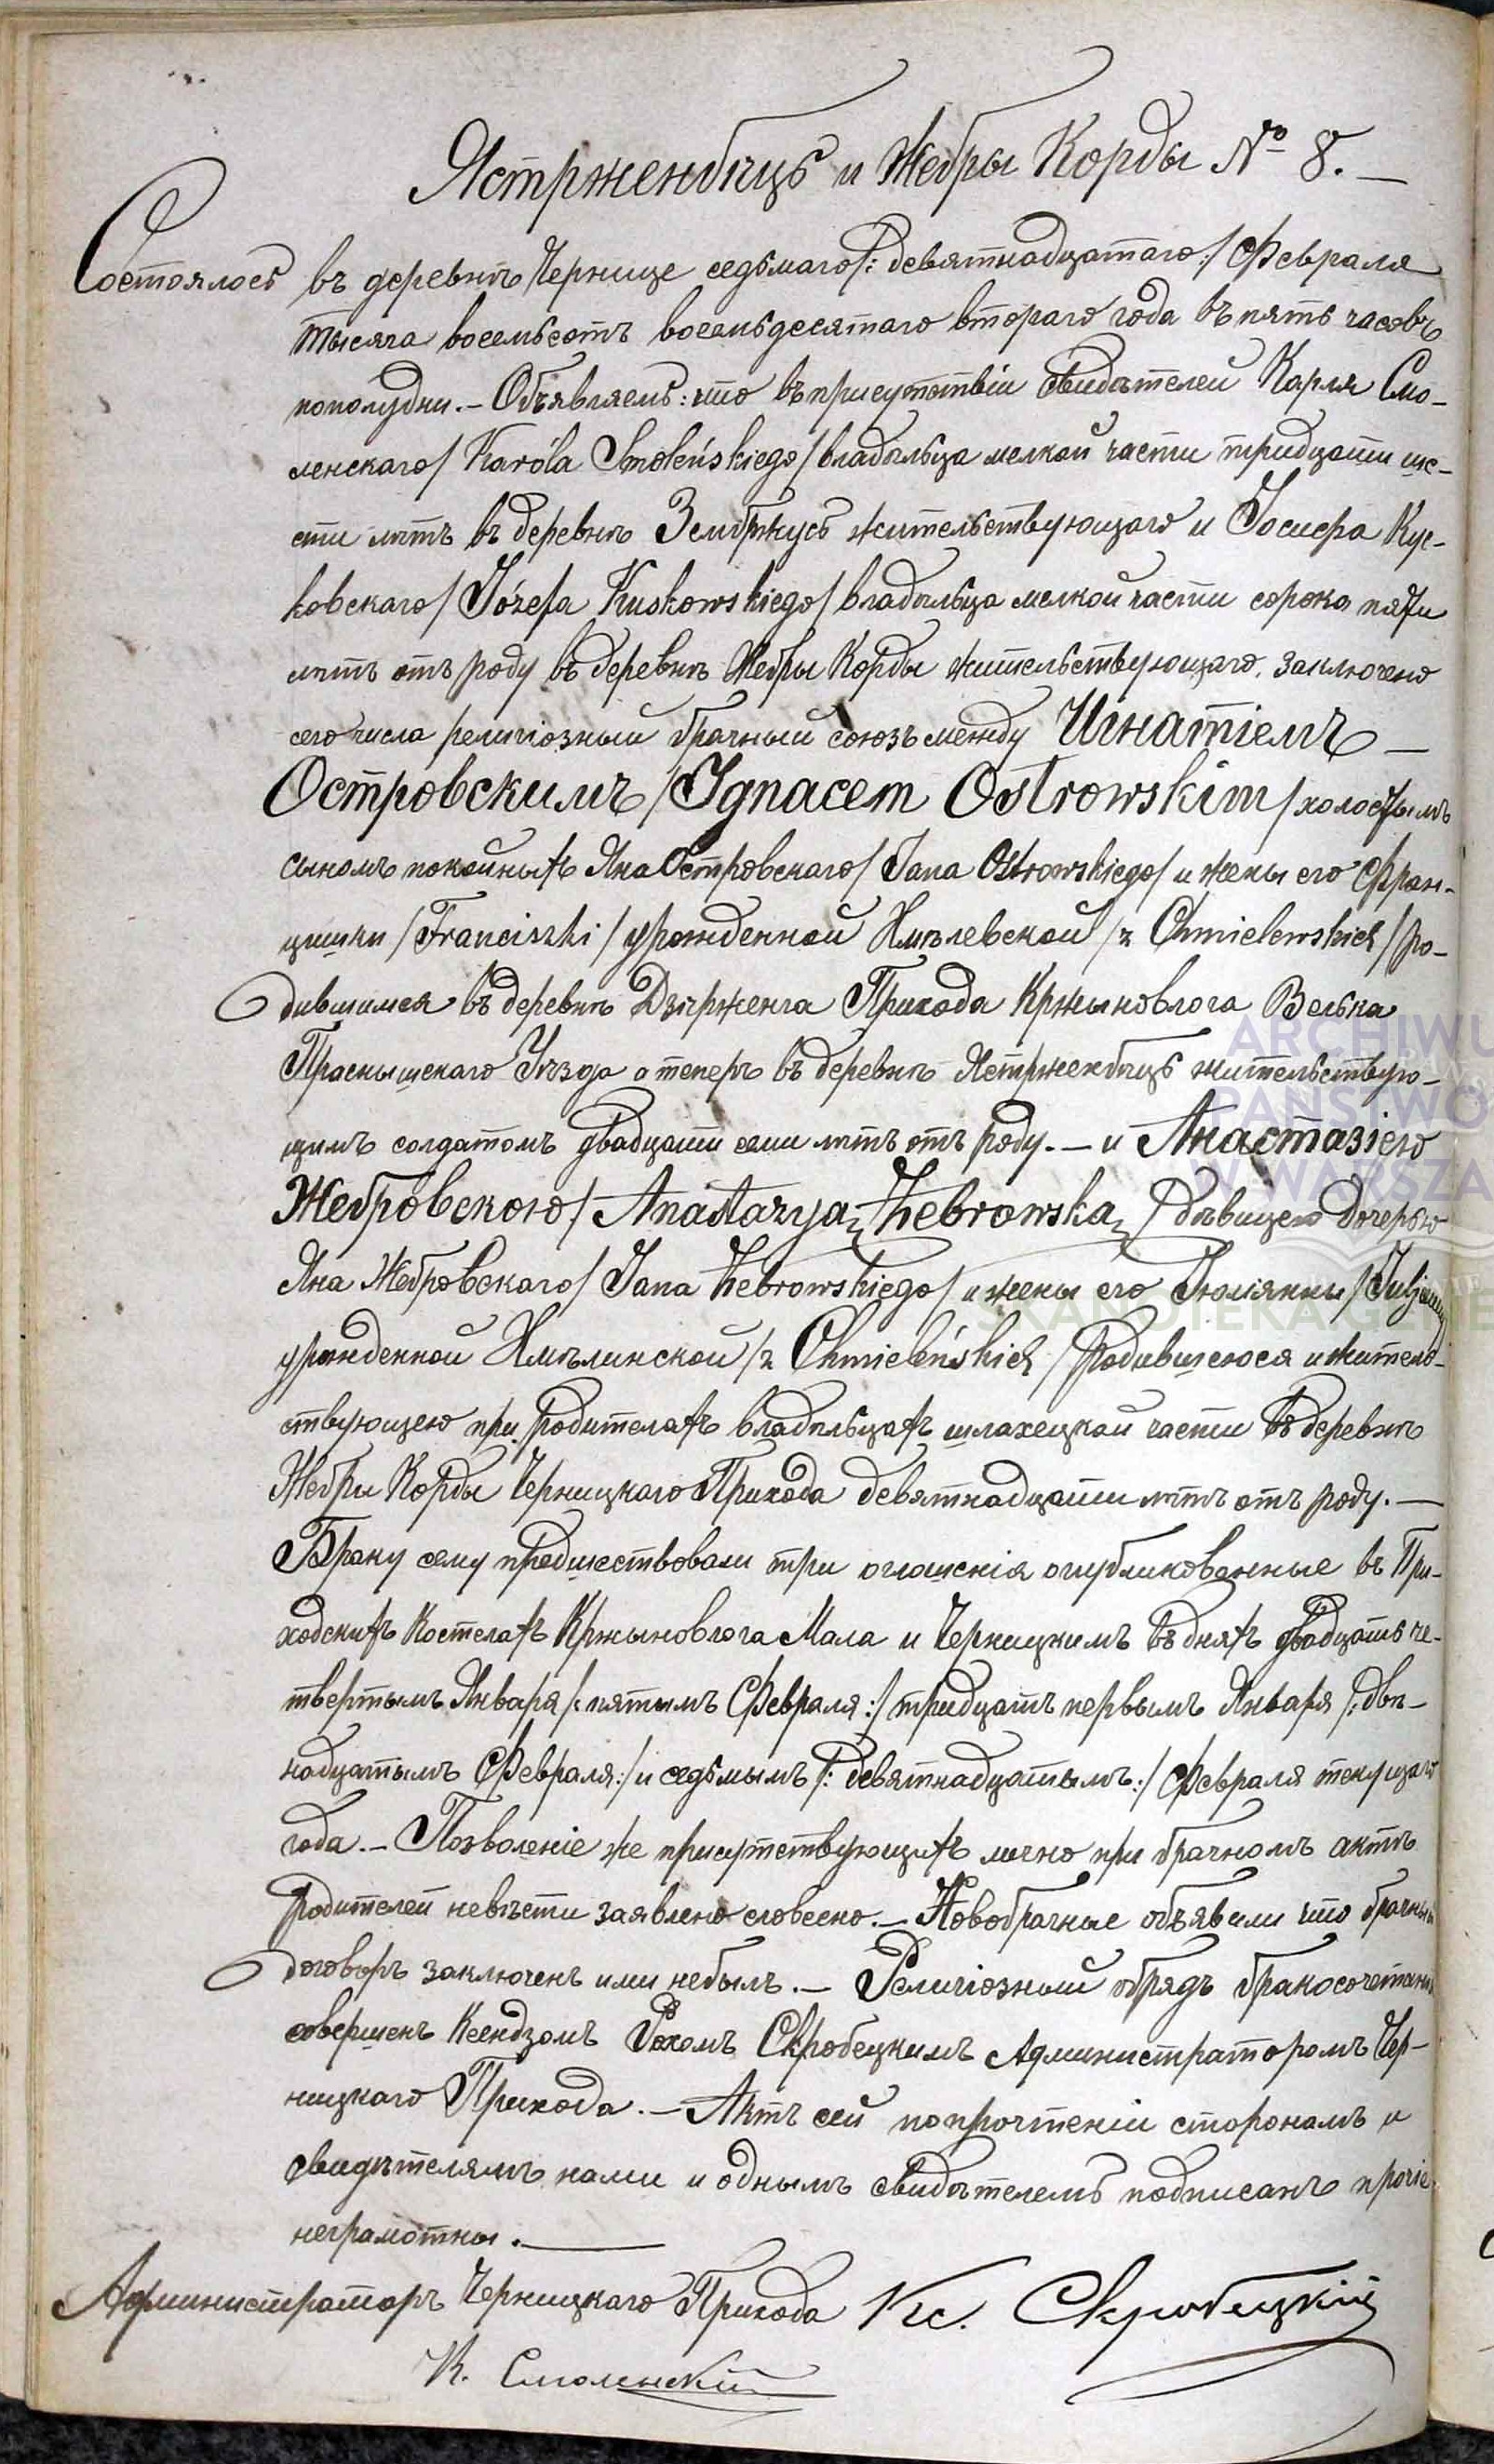 Ястржембецъ и Жебры Корды № 8. —
Состоялось въ деревнѣ Чернице седьмаго /: девятнадцатаго :/ Февраля
тысяча восемьсотъ восемьдесятаго втораго года въ пять часовъ
пополудни. — Объявляемъ: что въ присутствіи свидѣтелей Карля Смо-
ленскаго / Karóla Smoleńskiego / владѣльца мелкой части тридцати ше-
сти лѣтъ въ деревнѣ Зембржусъ жительствующаго и Іосифа Кус-
ковскаго / Józefa Kuskowskiego / владѣльца мелкой части сорока пяти
лѣтъ отъ роду въ деревнѣ Жебры Корды жительствующаго, заключено
сего числа религіозный брачный союзъ между Игнатіемъ —
Островскимъ / Ignacem Ostrowskim / холостымъ
сыномъ покойныхъ Яна Островскаго / Jana Ostrowskiego / и жены его Фран-
цишки / Franciszki / урожденной Хмѣлевской / z Chmielewskich / ро-
дившимся въ деревнѣ Дзѣрженга Прихода Кржыновлога Велька
Праснышскаго Уѣзда а теперь въ деревнѣ Ястржембецъ жительствую-
щимъ солдатомъ двадцати семи лѣтъ отъ роду. — и Анастазіею
Жебровскою / Anastazyą Żebrowską / дѣвицею дочерью
Яна Жебровскаго / Jana Żebrowskiego / и жены его Юліянны / Julijanny
урожденной Хмѣлинской / z Chmieleńskich / родившеюся и житель-
ствующею при родителяхъ владѣльцахъ шляхецкой части въ деревнѣ
Жебры Корды Черницкаго Прихода девятнадцати лѣтъ отъ роду. —
Браку сему предшествовали три оглашенія опубликованные въ При-
ходскихъ Костелахъ Кржыновлога Мала и Черницкимъ въ дняхъ двадцать че-
твертымъ Января /: пятымъ Февраля :/ тридцать первымъ Января /: двѣ-
надцатымъ Февраля :/ и седьмымъ /: девятнадцатымъ :/ Февраля текущаго
года. — Позволеніе же присутствующихъ лично при брачномъ актѣ
родителей невѣсти заявлено словесно. — Новобрачные объявили что брачный
договоръ заключенъ ими небылъ. — Религіозный обрядъ бракосочетанія
совершенъ Ксендзомъ Рохомъ Скробецкимъ Администраторомъ Чер-
ницкаго Прихода. — Актъ сей попрочтеніи сторонамъ и
свидѣтелямъ нами и однымъ свидѣтелемъ подписанъ прочіе
неграмотны. —
Администраторъ Черницкаго Прихода Кс. Скробецкій
К. Смоленскій